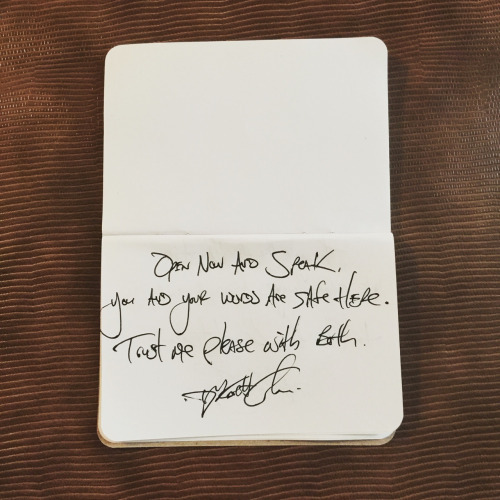 Open Now AND SPEAK.
you AND your words Are SAfe Here.
Trust me please with Both.